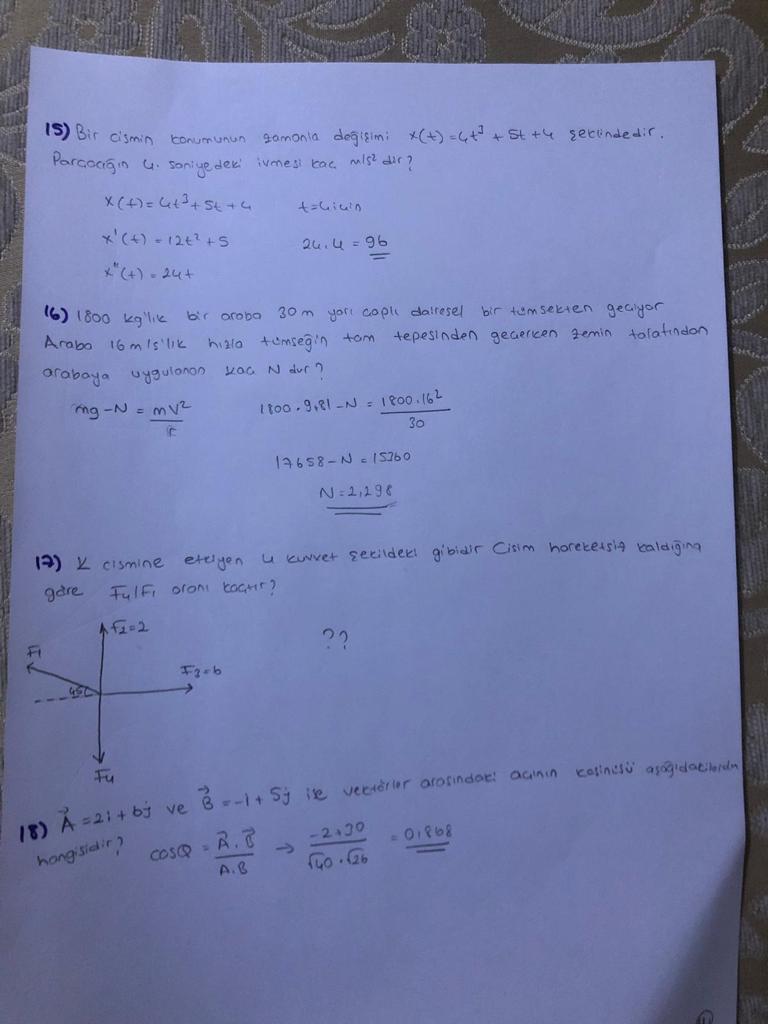 15) Bir cismin konumunun zamanla değişimi x(t)=4t³ + 5t + 4 şeklindedir.
Parçacığın 4. saniyedeki ivmesi kaç m/s² dir?
x(t)=4t³+5t+4 t=4 için
x'(t)=12t²+5 24.4 = 96
x"(t)=24t
16) 1800 kg'lık bir araba 30 m yarı çaplı dairesel bir tümsekten geçiyor
Araba 16 m/s'lik hızla tümseğin tam tepesinden geçerken zemin tarafından
arabaya uygulanan kaç N dur?
mg-N = mv²/r 1800.9,81-N = 1800.16²/30
17658-N=15360
N=2,298
17) K cismine etkiyen 4 kuvvet şekildeki gibidir Cisim hareketsiz kaldığına
göre F4/F1 oranı kaçtır?
F2=2 ??
F1
F3=6
45
F4
18) A⃗ =2i+6j ve B⃗ =-i+5j ise vektörler arasındaki açının kosinüsü aşağıdakilerden
hangisidir? cosQ = A⃗.B⃗/A.B → -2+30/√40.√26 = 0,868